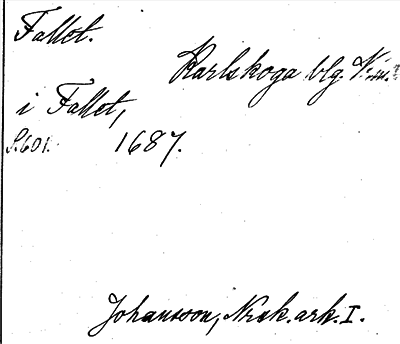 Fallet.
Karlskoga blg. V:m.
i Fallet,
S.601. 1687.
Johansson, Nrsk. ark. I.